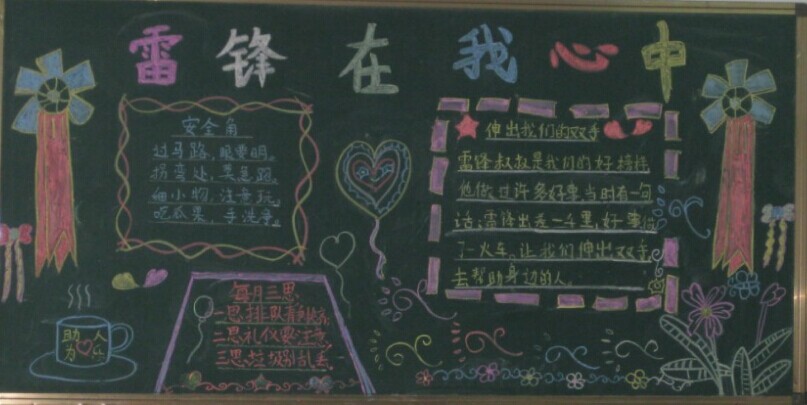 雷锋在我心中
安全角
过马路，眼要明。
拐弯处，莫急跑。
细小物，注意玩。
吃瓜果，手洗净。
伸出我们的双手
雷锋叔叔是我们的好榜样
他做过许多好事，当时有一句
话：雷锋出差一千里，好事做
了一火车。让我们伸出双手
去帮助身边的人。
每月三思
一思排队
二思礼仪要注意
三思垃圾别乱丢
助人
为乐